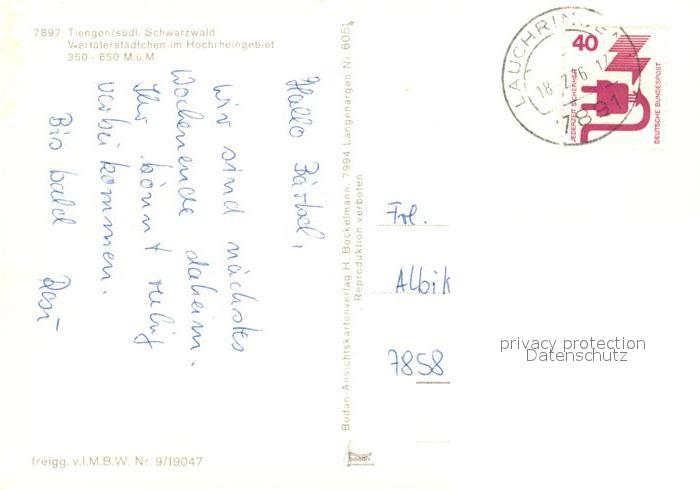 7897 Tiengen/südl. Schwarzwald
Viertälerstädtchen im Hochrheingebiet
350 - 650 M.ü.M
Hallo Bärbel,
Wir sind nächstes
Wochenende daheim.
Ihr könnt ruhig
vorbeikommen.
Bis bald Rosi
freigg. v.I.M.B.W. Nr. 9/19047
Bodan-Ansichtskartenverlag H. Bockelmann, 7994 Langenargen Nr. 6051
Reproduktion verboten
bodan
LAUCHRINGEN 1
18. 76. 17
7891
40
JEDERZEIT SICHERHEIT
DEUTSCHE BUNDESPOST
Frl.
Albik
7858
privacy protection
Datenschutz